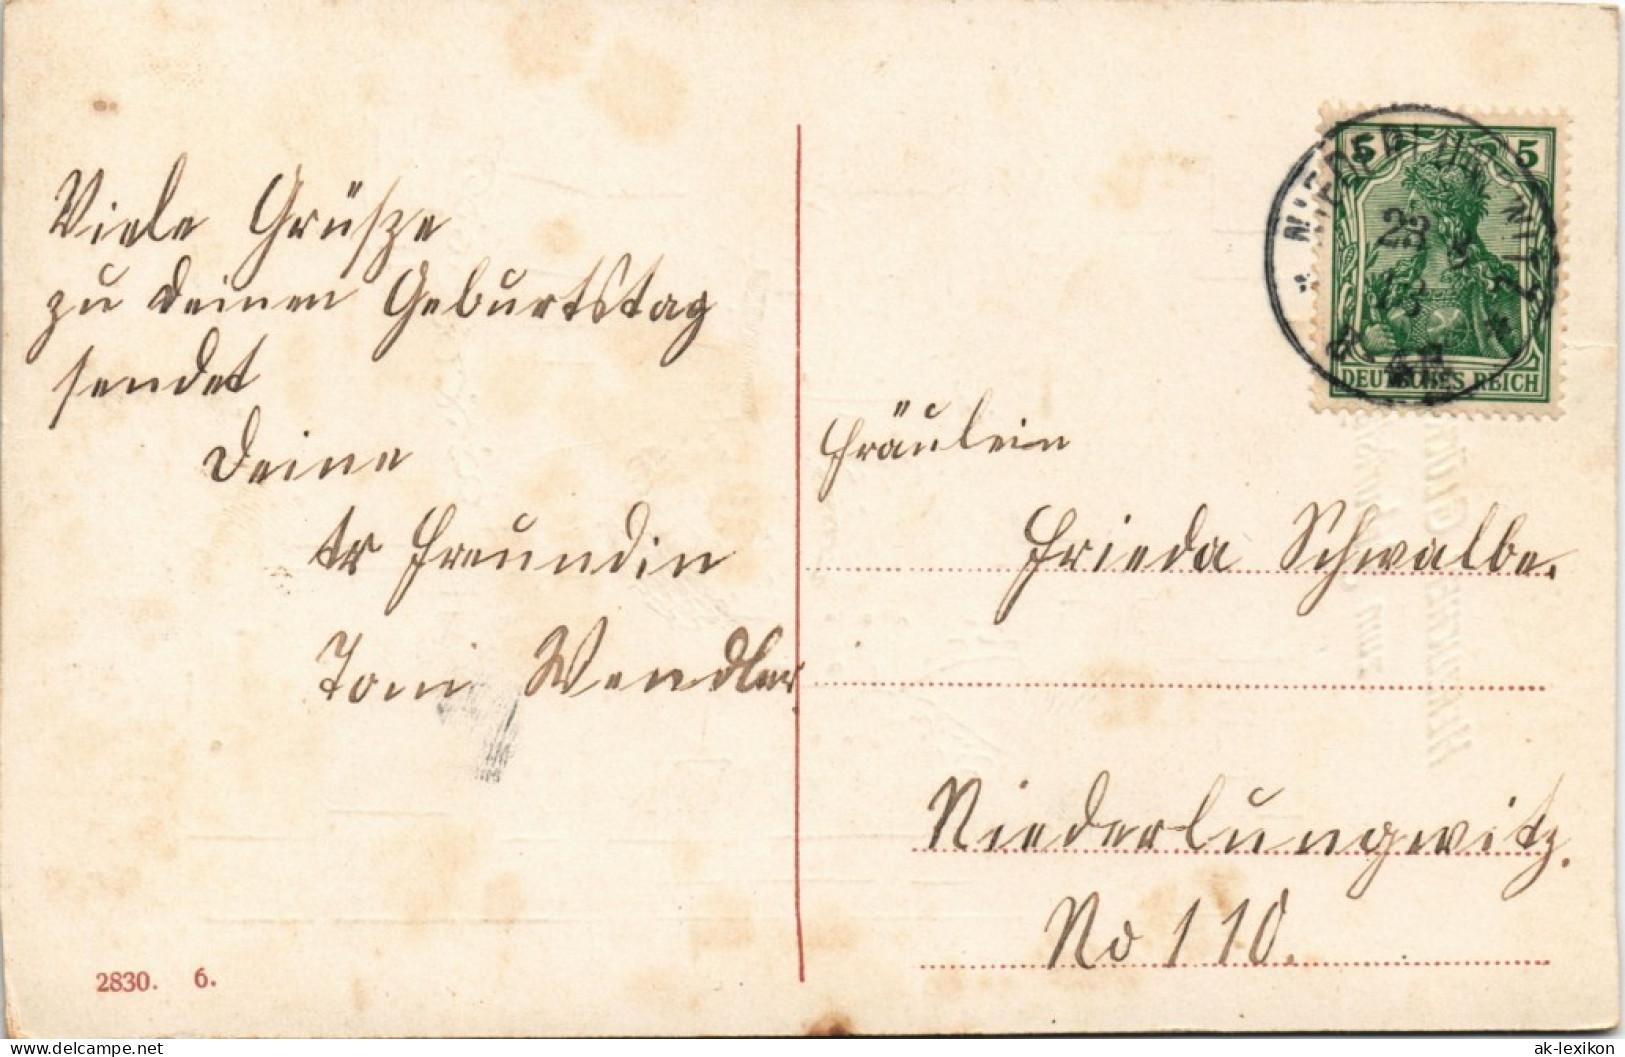 Viele Grüße
zu deinen Geburtstag
sendet
Deine
tr Freundin
Toni Wendler
2830. 6.
5 5
DEUTSCHES REICH
NIEDERLUNGWITZ
Fräulein
Frieda Schwalbe.
Niederlungwitz.
No 110.
ak-ansichtskarten.de
ak-lexikon